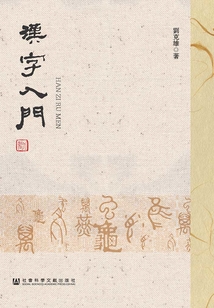 漢字入門
HAN ZI RU MEN
劉克雄◎著
社會科學文獻出版社
SOCIAL SCIENCES ACADEMIC PRESS (CHINA)